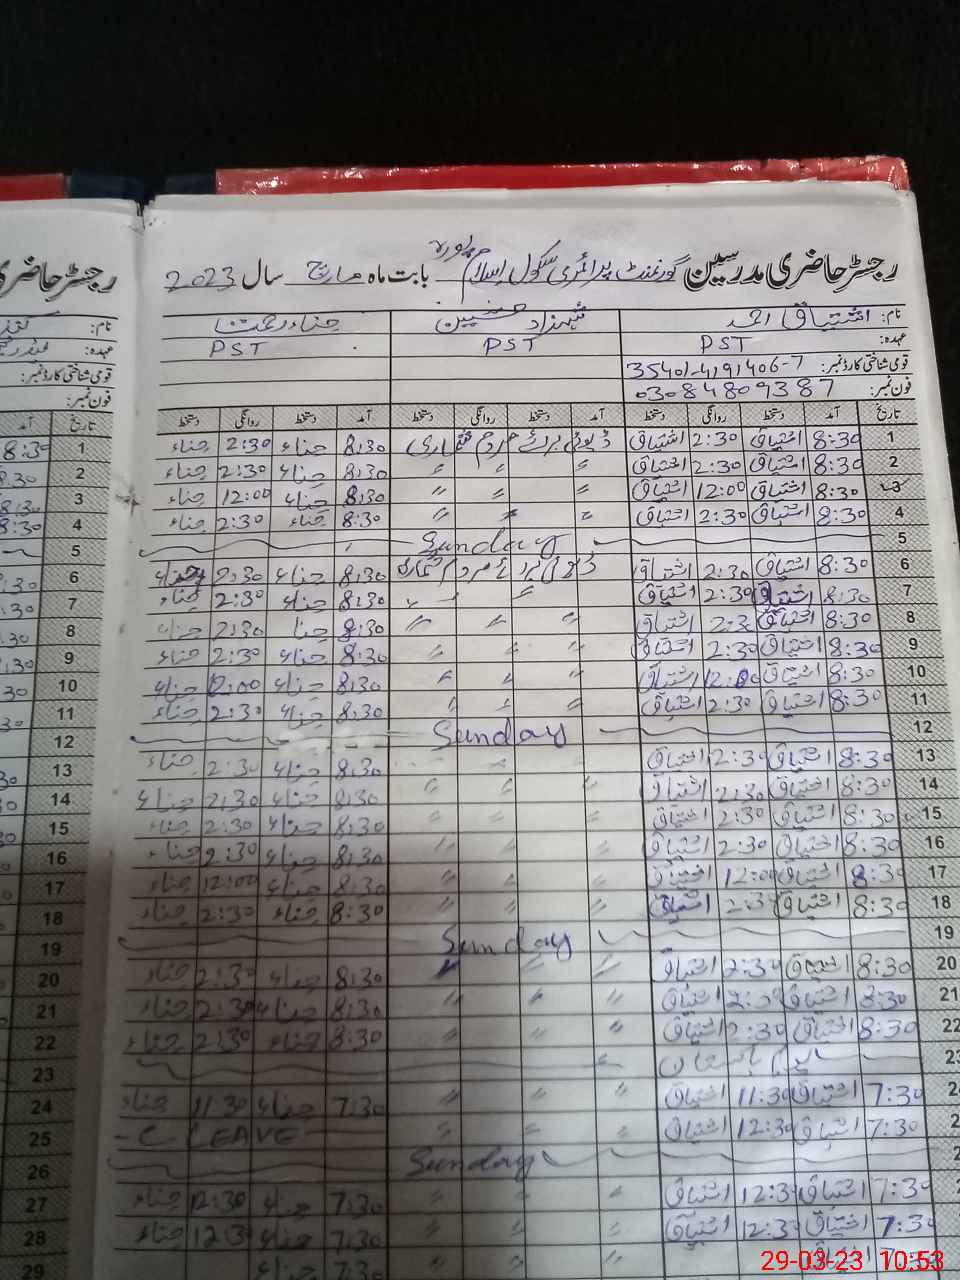 رجسٹر حاضری مدرسین گورنمنٹ پرائمری سکول اسلام پورہ بابت ماہ مارچ سال 2023
نام: اشتیاق احمد شہزاد حسین حناء رحمت
عہدہ: PST PST PST
قومی شناختی کارڈ نمبر: 35401-4191406-7
فون نمبر: 03084809387
تاریخ آمد دستخط روانگی دستخط آمد دستخط روانگی دستخط آمد دستخط روانگی دستخط
1 8:30 اشتیاق 2:30 اشتیاق ڈیوٹی برائے مردم شماری 8:30 حناء 2:30 حناء
2 8:30 اشتیاق 2:30 اشتیاق " " " 8:30 حناء 2:30 حناء
3 8:30 اشتیاق 12:00 اشتیاق " " " 8:30 حناء 12:00 حناء
4 8:30 اشتیاق 2:30 اشتیاق " " " 8:30 حناء 2:30 حناء
5 Sunday
6 8:30 اشتیاق 2:30 اشتیاق ڈیوٹی برائے مردم شماری 8:30 حناء 2:30 حناء
7 8:30 اشتیاق 2:30 اشتیاق " " " 8:30 حناء 2:30 حناء
8 8:30 اشتیاق 2:30 اشتیاق " " " 8:30 حناء 2:30 حناء
9 8:30 اشتیاق 2:30 اشتیاق " " " 8:30 حناء 2:30 حناء
10 8:30 اشتیاق 12:00 اشتیاق " " " 8:30 حناء 12:00 حناء
11 8:30 اشتیاق 2:30 اشتیاق " " " 8:30 حناء 2:30 حناء
12 Sunday
13 8:30 اشتیاق 2:30 اشتیاق " " 8:30 حناء 2:30 حناء
14 8:30 اشتیاق 2:30 اشتیاق " " " 8:30 حناء 2:30 حناء
15 8:30 اشتیاق 2:30 اشتیاق " " " 8:30 حناء 2:30 حناء
16 8:30 اشتیاق 2:30 اشتیاق " " " 8:30 حناء 2:30 حناء
17 8:30 اشتیاق 12:00 اشتیاق " " " 8:30 حناء 12:00 حناء
18 8:30 اشتیاق 2:30 اشتیاق " " " 8:30 حناء 2:30 حناء
19 Sunday
20 8:30 اشتیاق 2:30 اشتیاق " " " 8:30 حناء 2:30 حناء
21 8:30 اشتیاق 2:30 اشتیاق " " " 8:30 حناء 2:30 حناء
22 8:30 اشتیاق 2:30 اشتیاق " " " 8:30 حناء 2:30 حناء
23 یوم پاکستان
24 7:30 اشتیاق 11:30 اشتیاق " " " 7:30 حناء 11:30 حناء
25 7:30 اشتیاق 12:30 اشتیاق " " " C LEAVE
26 Sunday
27 7:30 اشتیاق 12:30 اشتیاق " " " 7:30 حناء 12:30 حناء
28 7:30 اشتیاق 12:30 اشتیاق " " " 7:30 حناء 12:30 حناء
29 7:30 اشتیاق 7:30 حناء
29-03-23 10:53